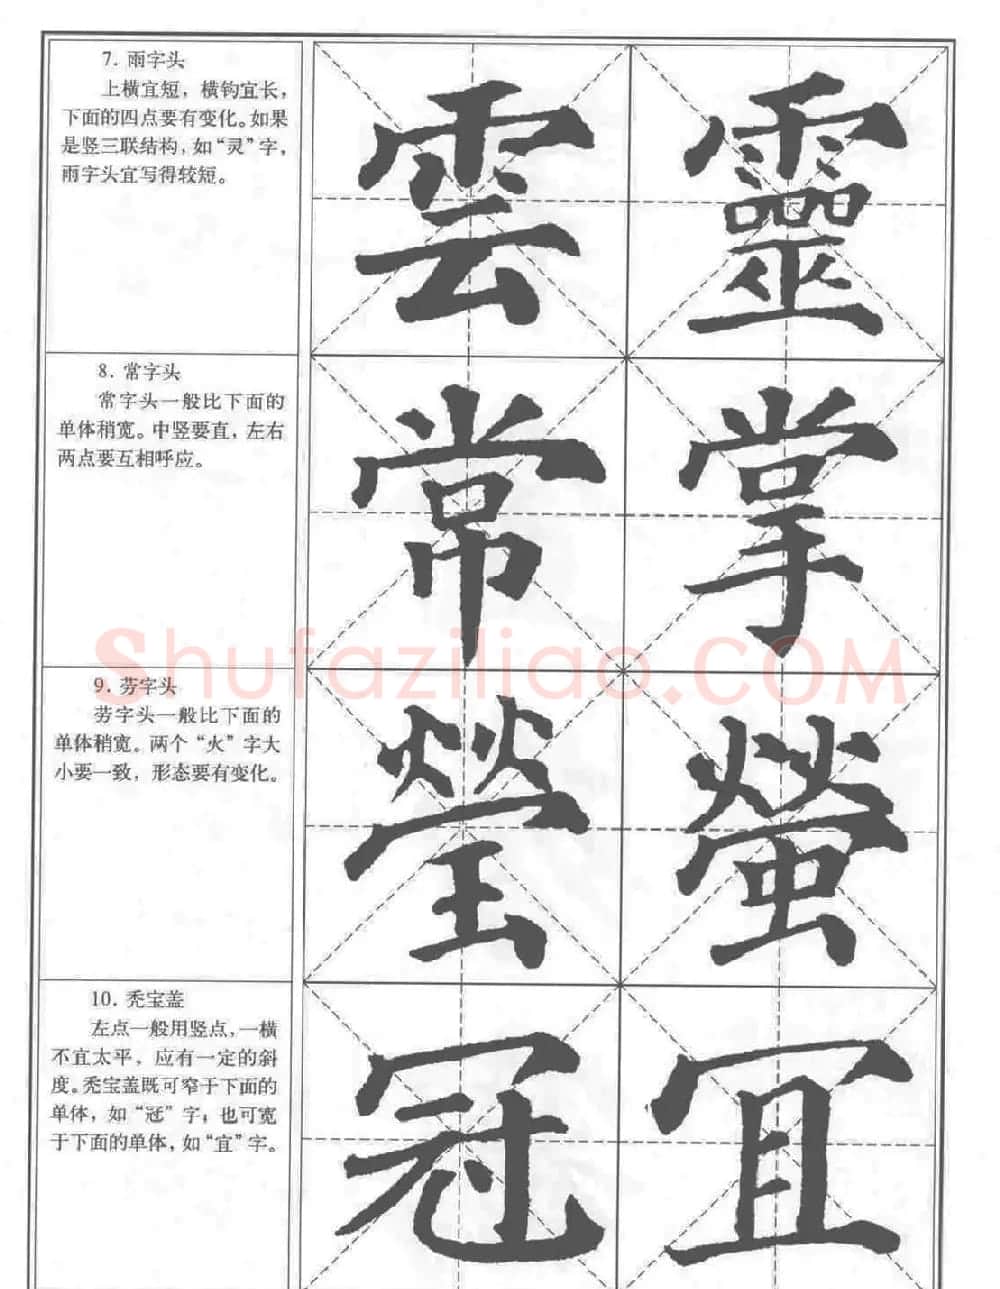 7. 雨字头
上横宜短，横钩宜长，
下面的四点要有变化。如果
是竖三联结构，如“灵”字，
雨字头宜写得较短。
雲 靈
8. 常字头
常字头一般比下面的
单体稍宽。中竖要直，左右
两点要互相呼应。
常 掌
Shufaziliao.COM
9. 劳字头
劳字头一般比下面的
单体稍宽。两个“火”字大
小要一致，形态要有变化。
瑩 螢
10. 秃宝盖
左点一般用竖点，一横
不宜太平，应有一定的斜
度。秃宝盖既可窄于下面的
单体，如“冠”字；也可宽
于下面的单体，如“宜”字。
冠 冝